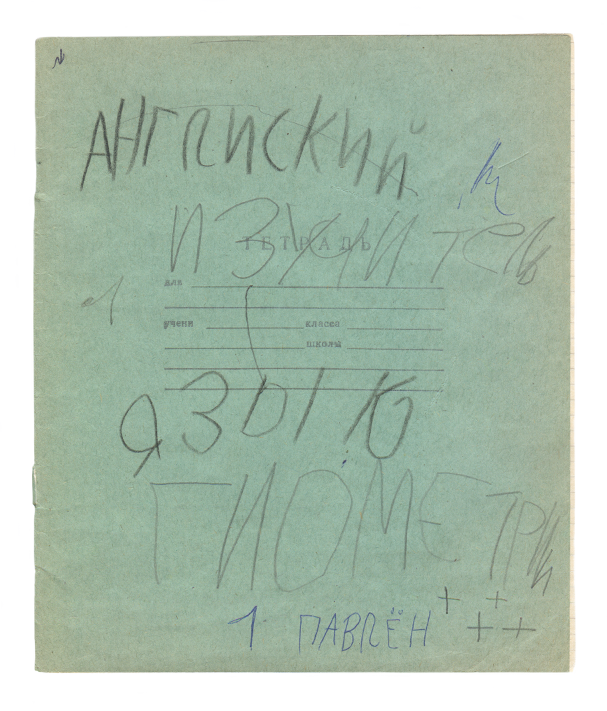 АНГЛИСКИЙ
ИЗУЧИТЕЛЬ
ТЕТРАДЬ
для
учени класса
школы
ЯЗЫК
ГИОМЕТРИ
1 ПАВЛЁН